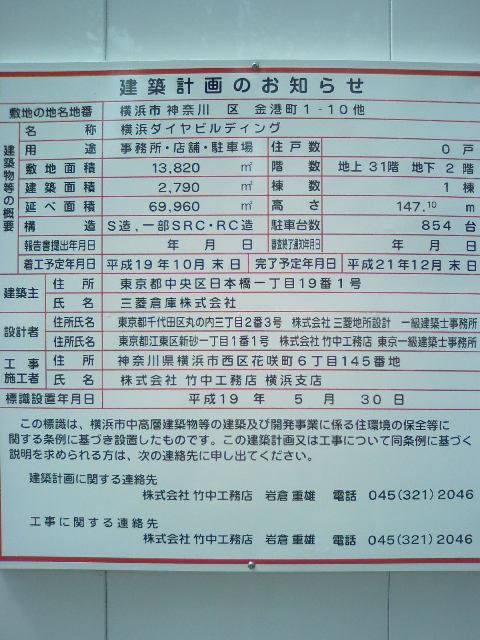 建築計画のお知らせ
敷地の地名地番 横浜市 神奈川 区 金港町 1-10他
建築物等の概要
名称 横浜ダイヤビルディング
用途 事務所・店舗・駐車場 住戸数 0 戸
敷地面積 13,820 ㎡ 階数 地上 31階 地下 2 階
建築面積 2,790 ㎡ 棟数 1 棟
延べ面積 69,960 ㎡ 高さ 147.10 m
構造 S造,一部SRC・RC造 駐車台数 854 台
報告書提出年月日 年 月 日 審査終了通知年月日 年 月 日
着工予定年月日 平成19年10月 末 日 完了予定年月日 平成21年12月 末 日
建築主 住所 東京都中央区日本橋一丁目19番1号
氏名 三菱倉庫株式会社
設計者 住所氏名 東京都千代田区丸の内三丁目2番3号 株式会社 三菱地所設計 一級建築士事務所
住所氏名 東京都江東区新砂一丁目1番1号 株式会社 竹中工務店 東京一級建築士事務所
工事施工者 住所 神奈川県横浜市西区花咲町6丁目145番地
氏名 株式会社 竹中工務店 横浜支店
標識設置年月日 平成 19 年 5 月 30 日
この標識は、横浜市中高層建築物等の建築及び開発事業に係る住環境の保全等に
関する条例に基づき設置したものです。この建築計画又は工事について同条例に基づく
説明を求められる方は、次の連絡先に申し出てください。
建築計画に関する連絡先
株式会社 竹中工務店 岩倉 重雄 電話 045(321)2046
工事に関する連絡先
株式会社 竹中工務店 岩倉 重雄 電話 045(321)2046